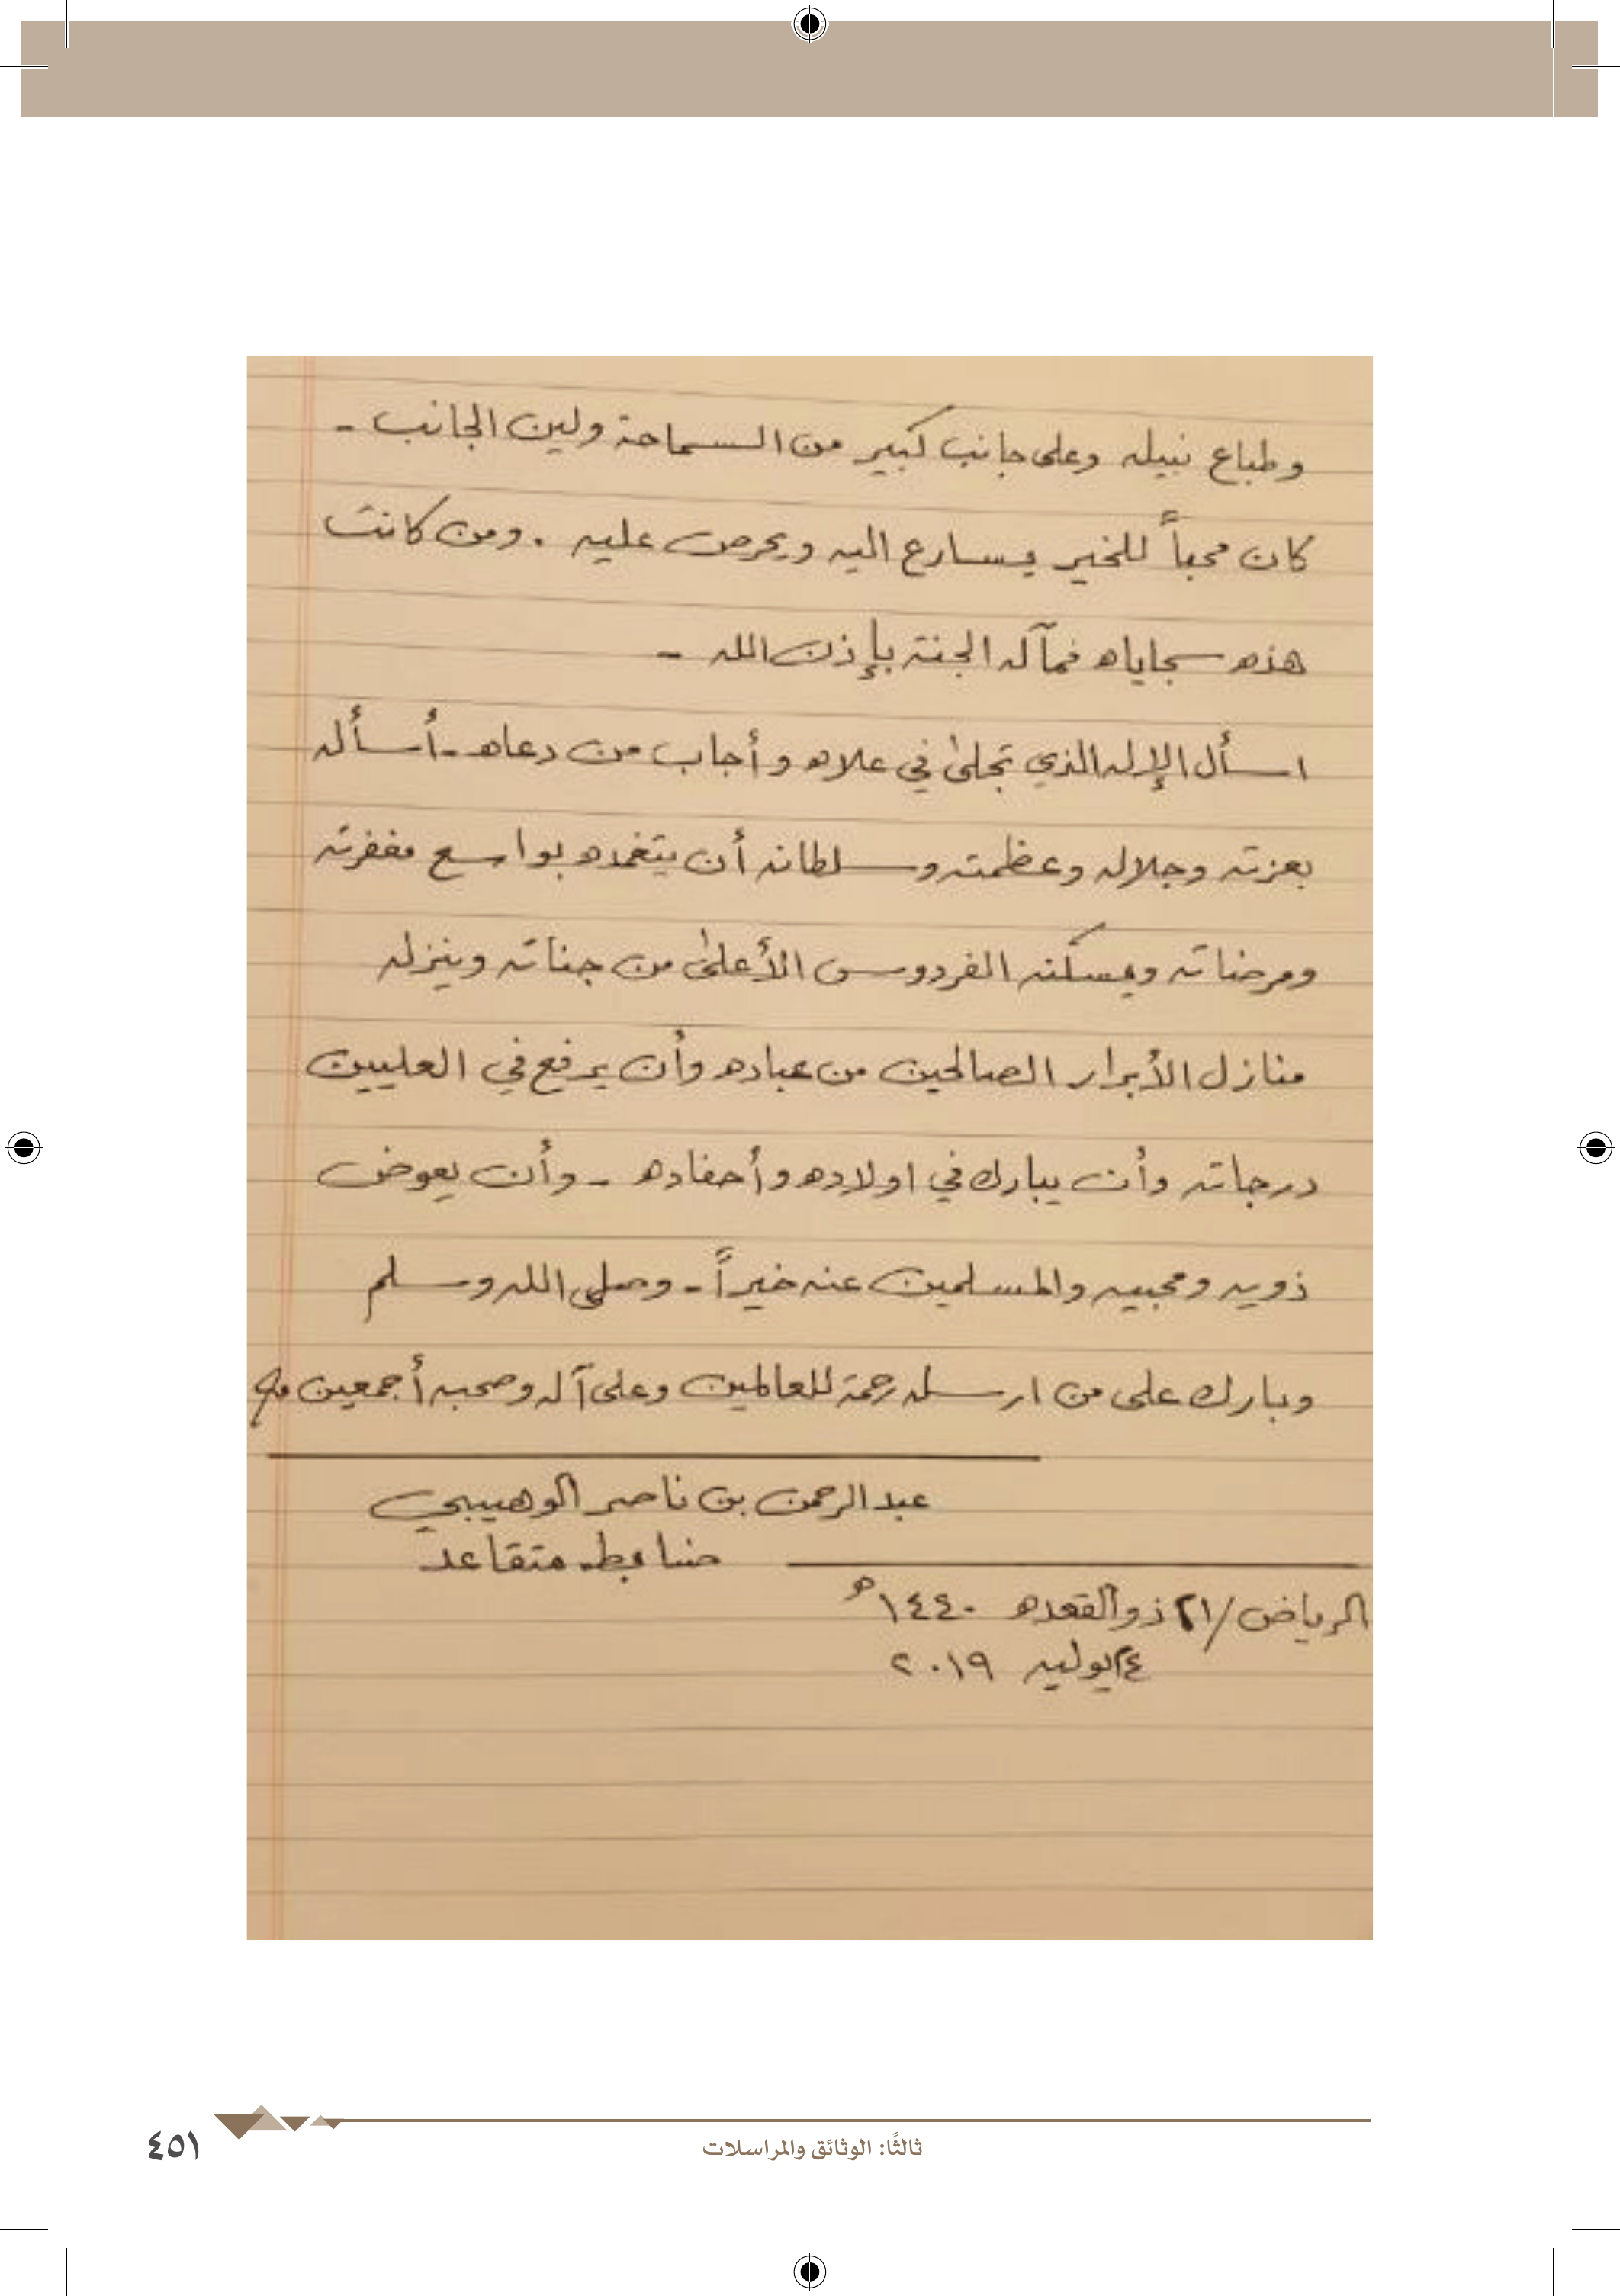 وطباع نبيله وعلى جانب كبير من السماحة ولين الجانب -
كان محباً للخير يسارع اليه ويحرص عليه . ومن كانت
هذه سجاياه فمآله الجنة بإذن الله -
اسأل الإله الذي تجلىٰ في علاه وأجاب من دعاه - أسأله
بعزته وجلاله وعظمته وسلطانه أن يتغمده بواسع مغفرته
ومرضاته ويسكنه الفردوس الأعلىٰ من جناته وينزله
منازل الأبرار الصالحين من عباده وأن يرفع في العليين
درجاته وأن يبارك في اولاده وأحفاده - وأن يعوض
ذويه ومحبيه والمسلمين عنه خيراً - وصلى الله وسلم
وبارك على من ارسله رحمة للعالمين وعلى آله وصحبه أجمعين
عبدالرحمن بن ناصر الوهيبي
ضابط متقاعد
الرياض / ٢١ ذو القعده ١٤٤٠ هـ
٢٤ يوليه ٢٠١٩
ثالثًا: الوثائق والمراسلات
٤٥١